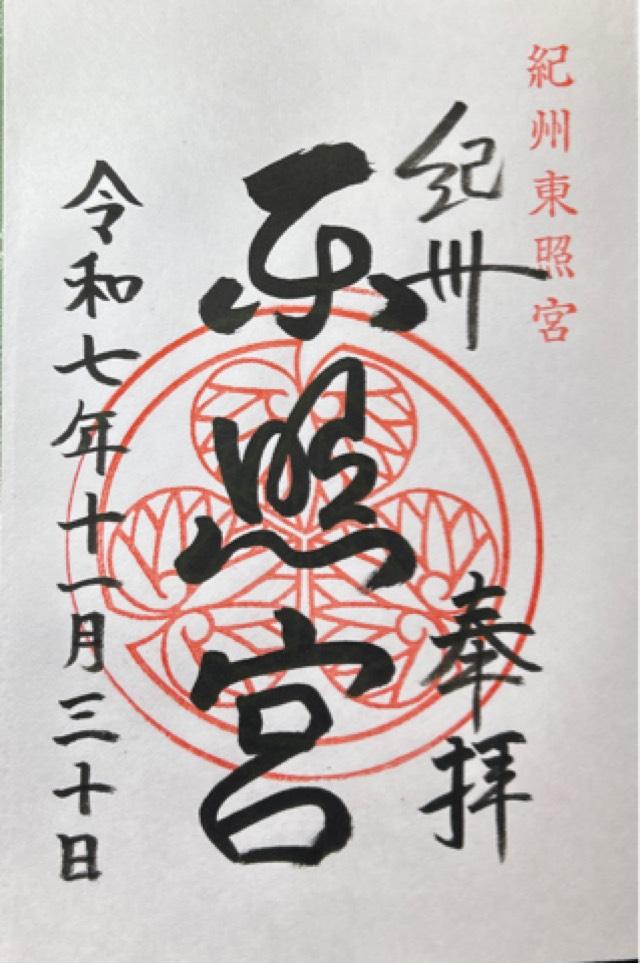 紀州東照宮
紀州
奉拝
東照宮
令和七年十一月三十日